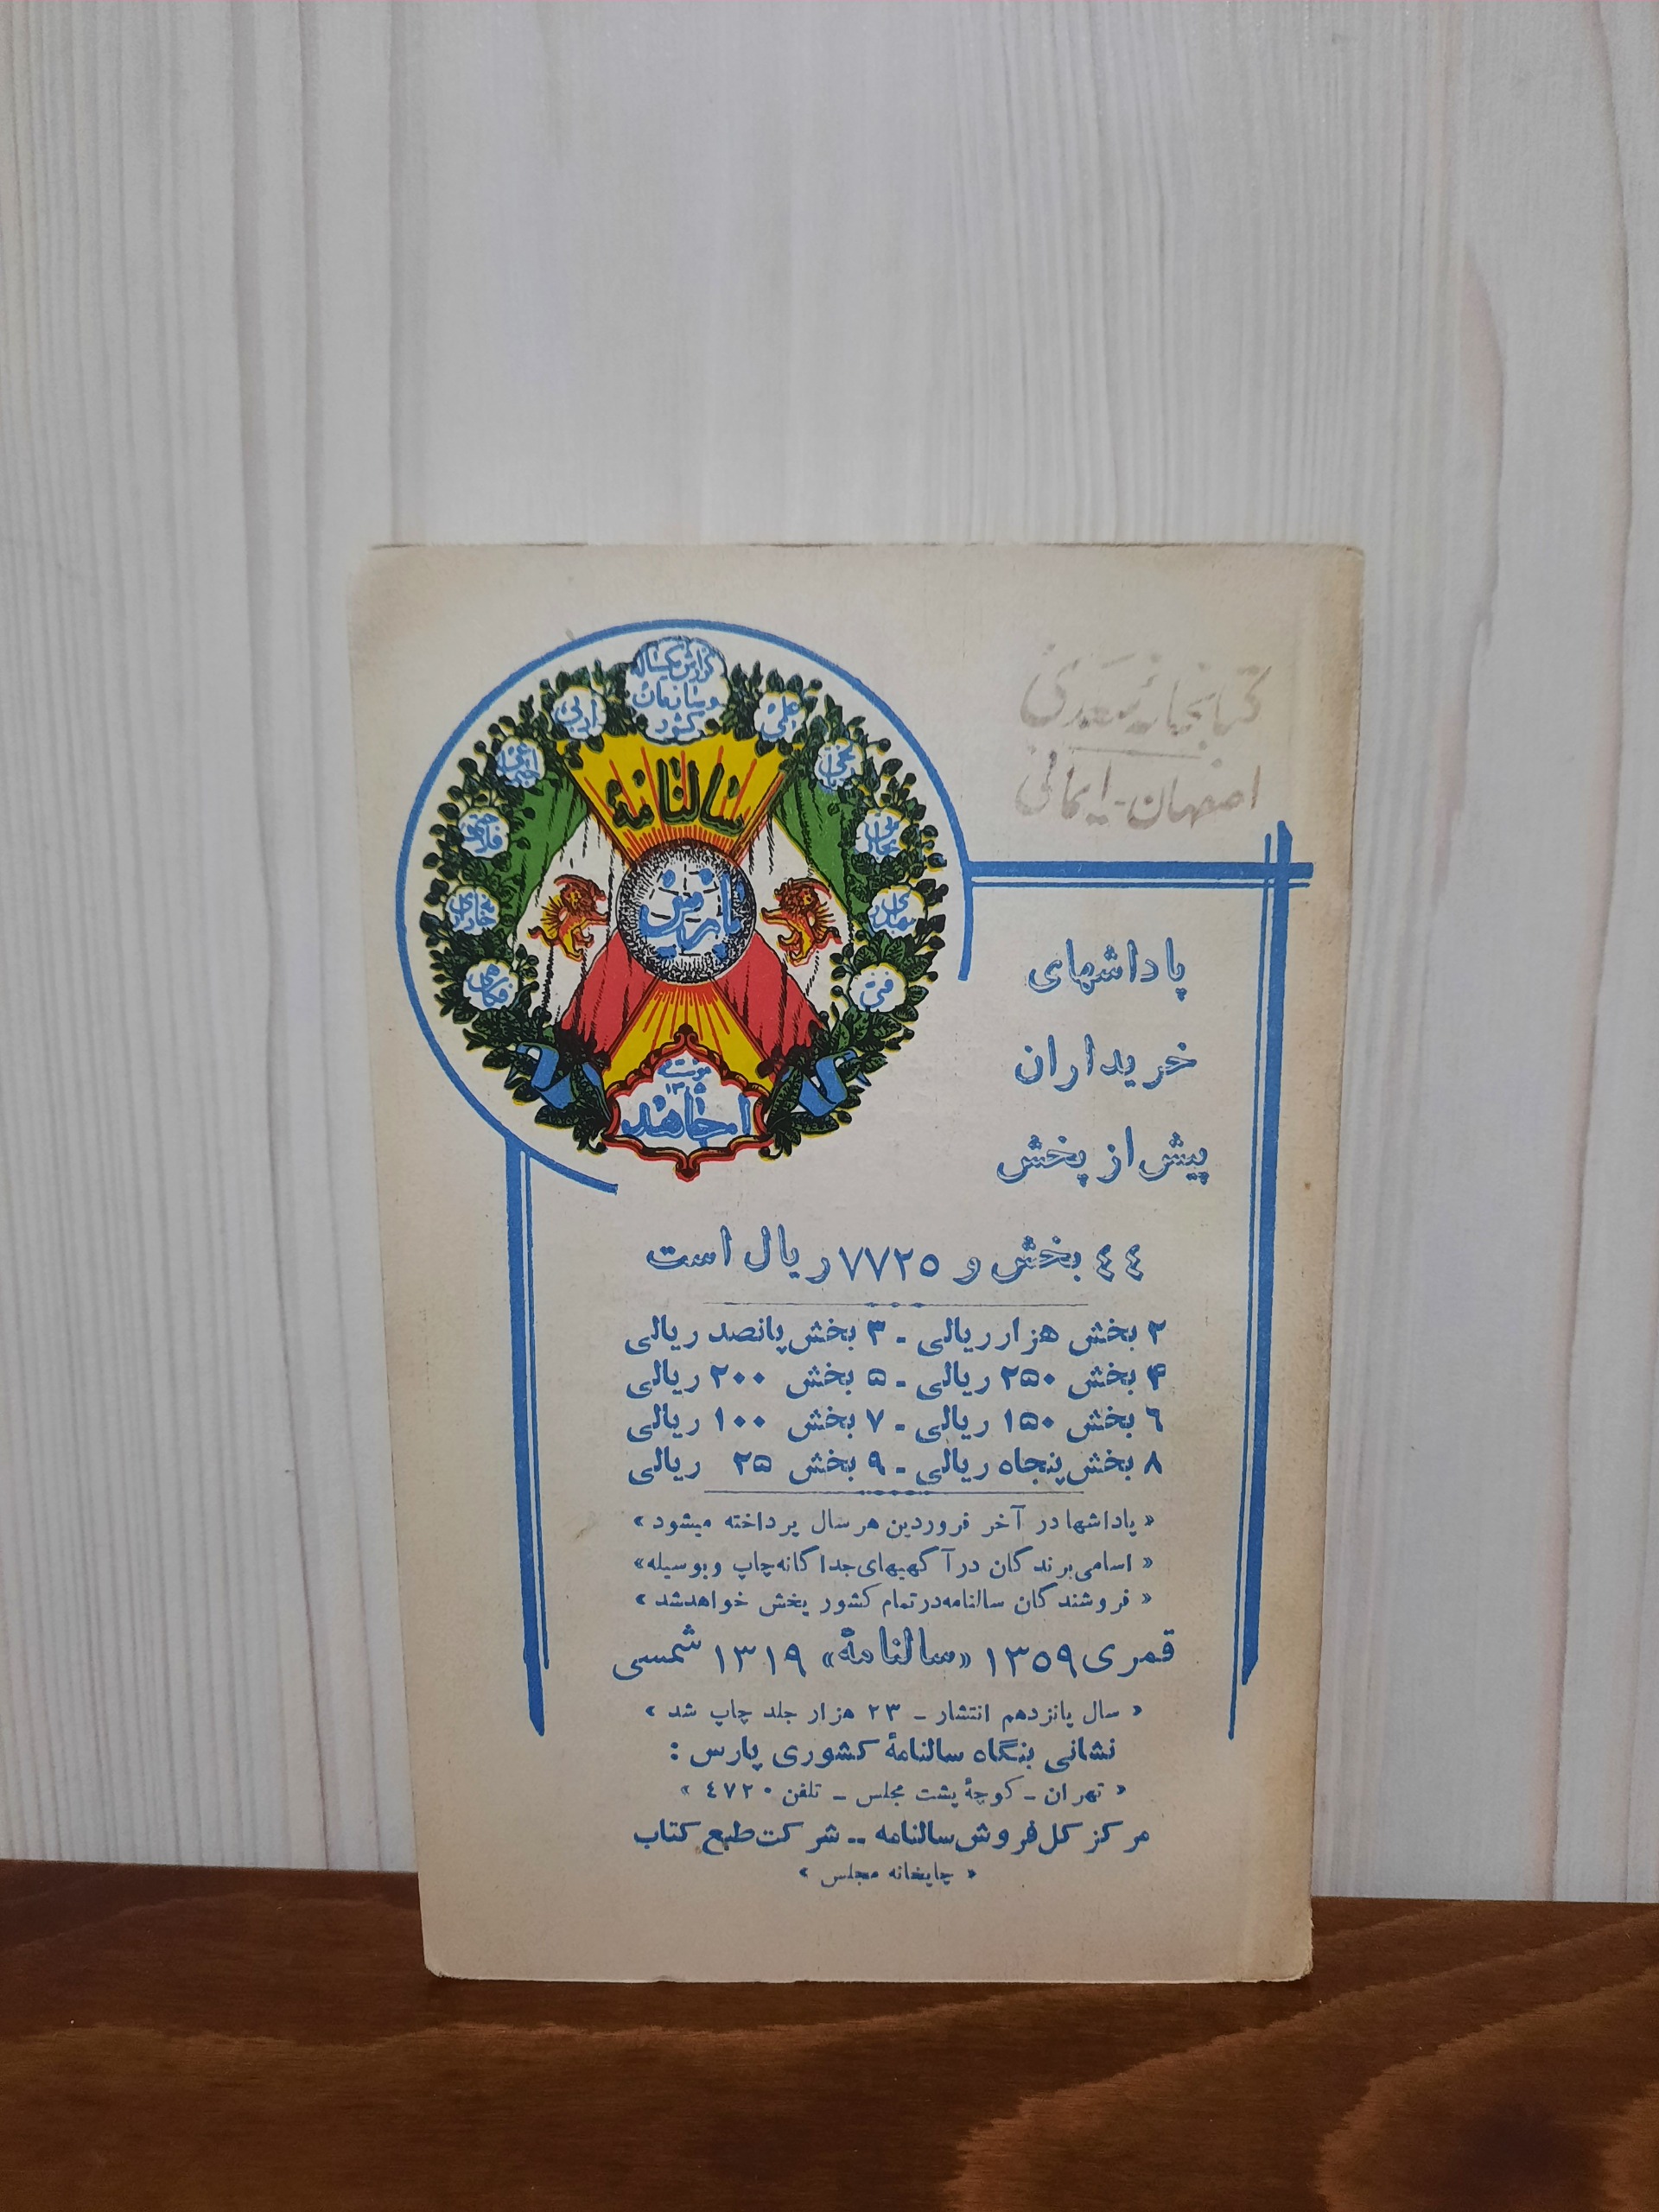 کتابخانه سعدی
اصفهان - ایمانی
گزارش یکساله
و سازمان
کشور
ادبی
علمی
سالنامه
پارس
فکاهی
فنی
امیر جاهد
پاداشهای
خریداران
پیش از پخش
٤٤ بخش و ٧٧٢٥ ریال است
۲ بخش هزار ریالی - ۳ بخش پانصد ریالی
۴ بخش ۲۵۰ ریالی - ۵ بخش ۲۰۰ ریالی
٦ بخش ۱۵۰ ریالی - ۷ بخش ۱۰۰ ریالی
۸ بخش پنجاه ریالی - ۹ بخش ۲۵ ریالی
« پاداشها در آخر فروردین هر سال پرداخته میشود »
« اسامی برندگان در آگهیهای جداگانه چاپ و بوسیله »
« فروشندگان سالنامه در تمام کشور پخش خواهد شد »
قمری ۱۳۵۹ «سالنامهٔ» ۱۳۱۹ شمسی
« سال پانزدهم انتشار - ۲۳ هزار جلد چاپ شد »
نشانی بنگاه سالنامهٔ کشوری پارس :
« تهران - کوچهٔ پشت مجلس - تلفن ٤٧٢٠ »
مرکز کل فروش سالنامه -- شرکت طبع کتاب
« چاپخانه مجلس »